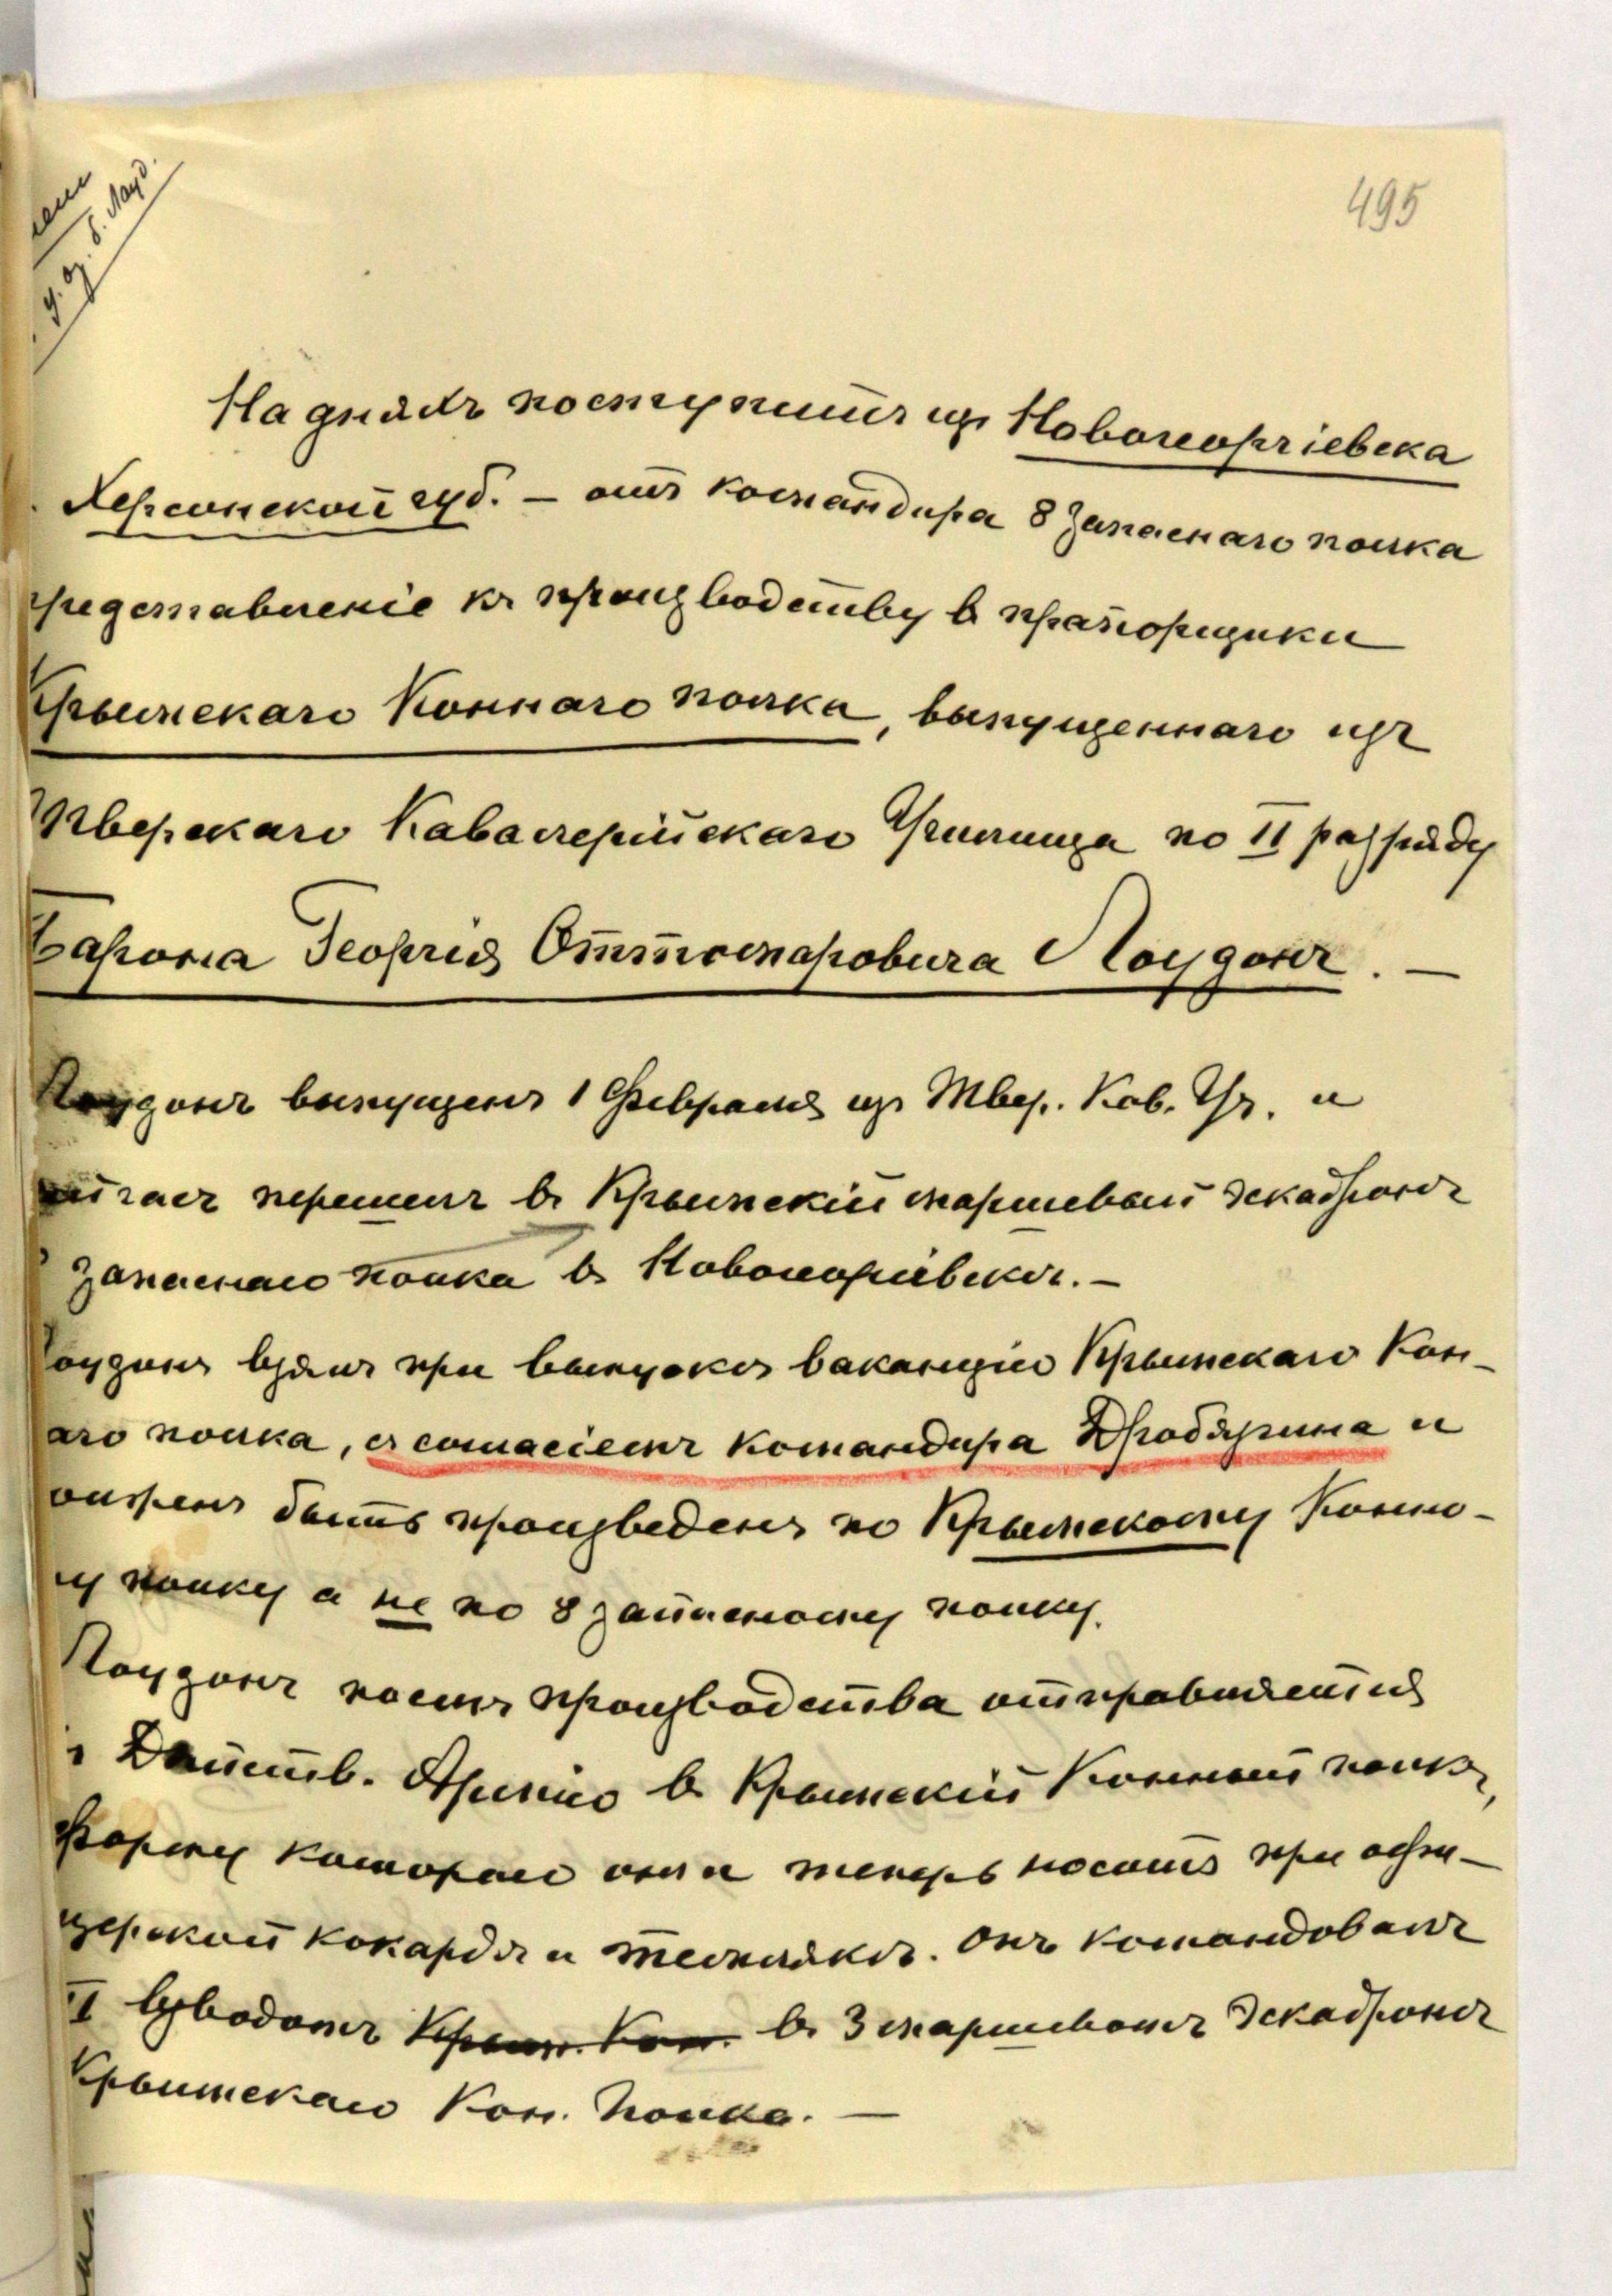 495
На дняхъ поступитъ изъ Новогеоргіевска
Херсонской губ. — отъ командира 8 Запаснаго полка
редставленіе къ производству въ прапорщики
Крымскаго Коннаго полка, выпущеннаго изъ
Тверскаго Кавалерійскаго Училища по II разряду
Барона Георгія Оттомаровича Лоудонъ. —
Лоудонъ выпущенъ 1 Февраля изъ Твер. Кав. Уч. и
перешелъ въ Крымскій маршевый эскадронъ
запаснаго полка въ Новогеоргіевскъ. —
оудонъ взялъ при выпускѣ вакансію Крымскаго Кон-
аго полка, съ согласіемъ командира Дробязгина и
быть произведенъ по Крымскому Конно-
у полку а не по 8 запасному полку.
Лоудонъ послѣ производства отправляется
Дѣйств. Армію въ Крымскій Конный полкъ,
Форму котораго онъ и теперь носитъ при офи-
церской кокардѣ и темлякѣ. Онъ командовалъ
I взводомъ Крым. Кон. въ 3 маршевомъ эскадронѣ
Крымскаго Кон. Полка. —